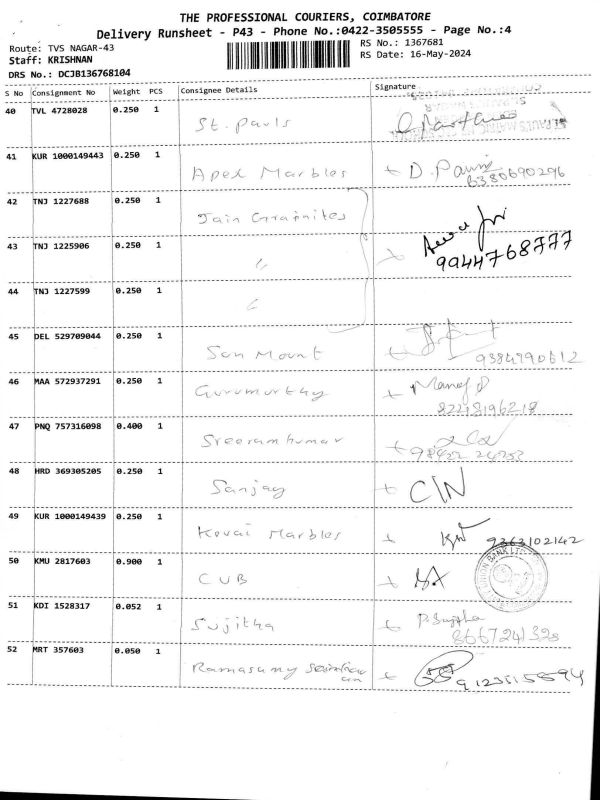 THE PROFESSIONAL COURIERS, COIMBATORE
Delivery Runsheet - P43 - Phone No.:0422-3505555 - Page No.:4
Route: TVS NAGAR-43
RS No.: 1367681
Staff: KRISHNAN
RS Date: 16-May-2024
DRS No.: DCJB136768104
S No Consignment No Weight PCS Consignee Details Signature
40 TVL 4728028 0.250 1 St. Pauls
41 KUR 1000149443 0.250 1 Apex Marbles + D.
6380690296
42 TNJ 1227688 0.250 1 Jain Grainites
43 TNJ 1225906 0.250 1 "
9944768777
44 TNJ 1227599 0.250 1 "
45 DEL 529709044 0.250 1 Sen Mount
9384790612
46 MAA 572937291 0.250 1 Gurumurthy + Manoj
82218196218
47 PNQ 757316098 0.400 1 Sreeramkumar
48 HRD 369305205 0.250 1 Sanjay + C/N
49 KUR 1000149439 0.250 1 Kovai Marbles 9363102142
50 KMU 2817603 0.900 1 CUB
51 KDI 1528317 0.052 1 Sujitha + P. Sujitha
8667241328
52 MRT 357603 0.050 1 Ramasamy